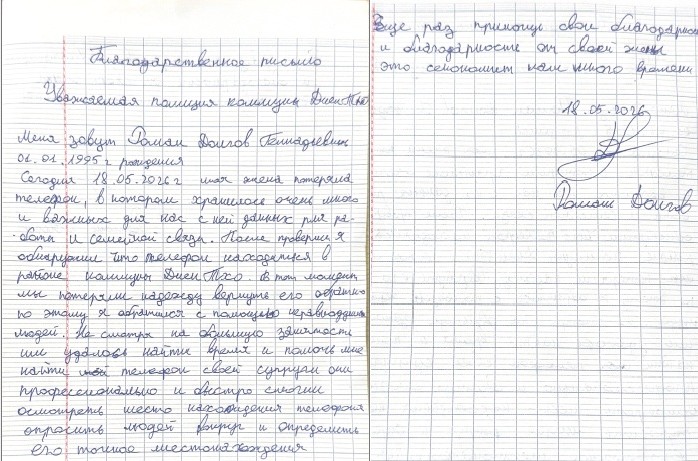 Благодарственное письмо
Уважаемая полиция коммуны Диен Тхо
Меня зовут Роман Долгов Геннадьевич
01.01.1995 г рождения
Сегодня 18.05.2026 г моя жена потеряла
телефон, в котором хранилось очень много
и важных для нас с ней данных для ра-
боты и семейной связи. После проверки я
обнаружил что телефон находиться в
районе коммуны Диен Тхо. В тот момент
мы потеряли надежду вернуть его обратно
по этому я обратился с помощью неравнодушных
людей. Не смотря на большую занятость
им удалось найти время и помочь мне
найти телефон своей супруги они
профессионально и быстро смогли
осмотреть место нахождения телефона
опросить людей вокруг и определить
его точное местонахождения
Еще раз приношу свои благодарности
и благодарность от своей жены
это сэкономит нам много времени
18.05.2026
Роман Долгов